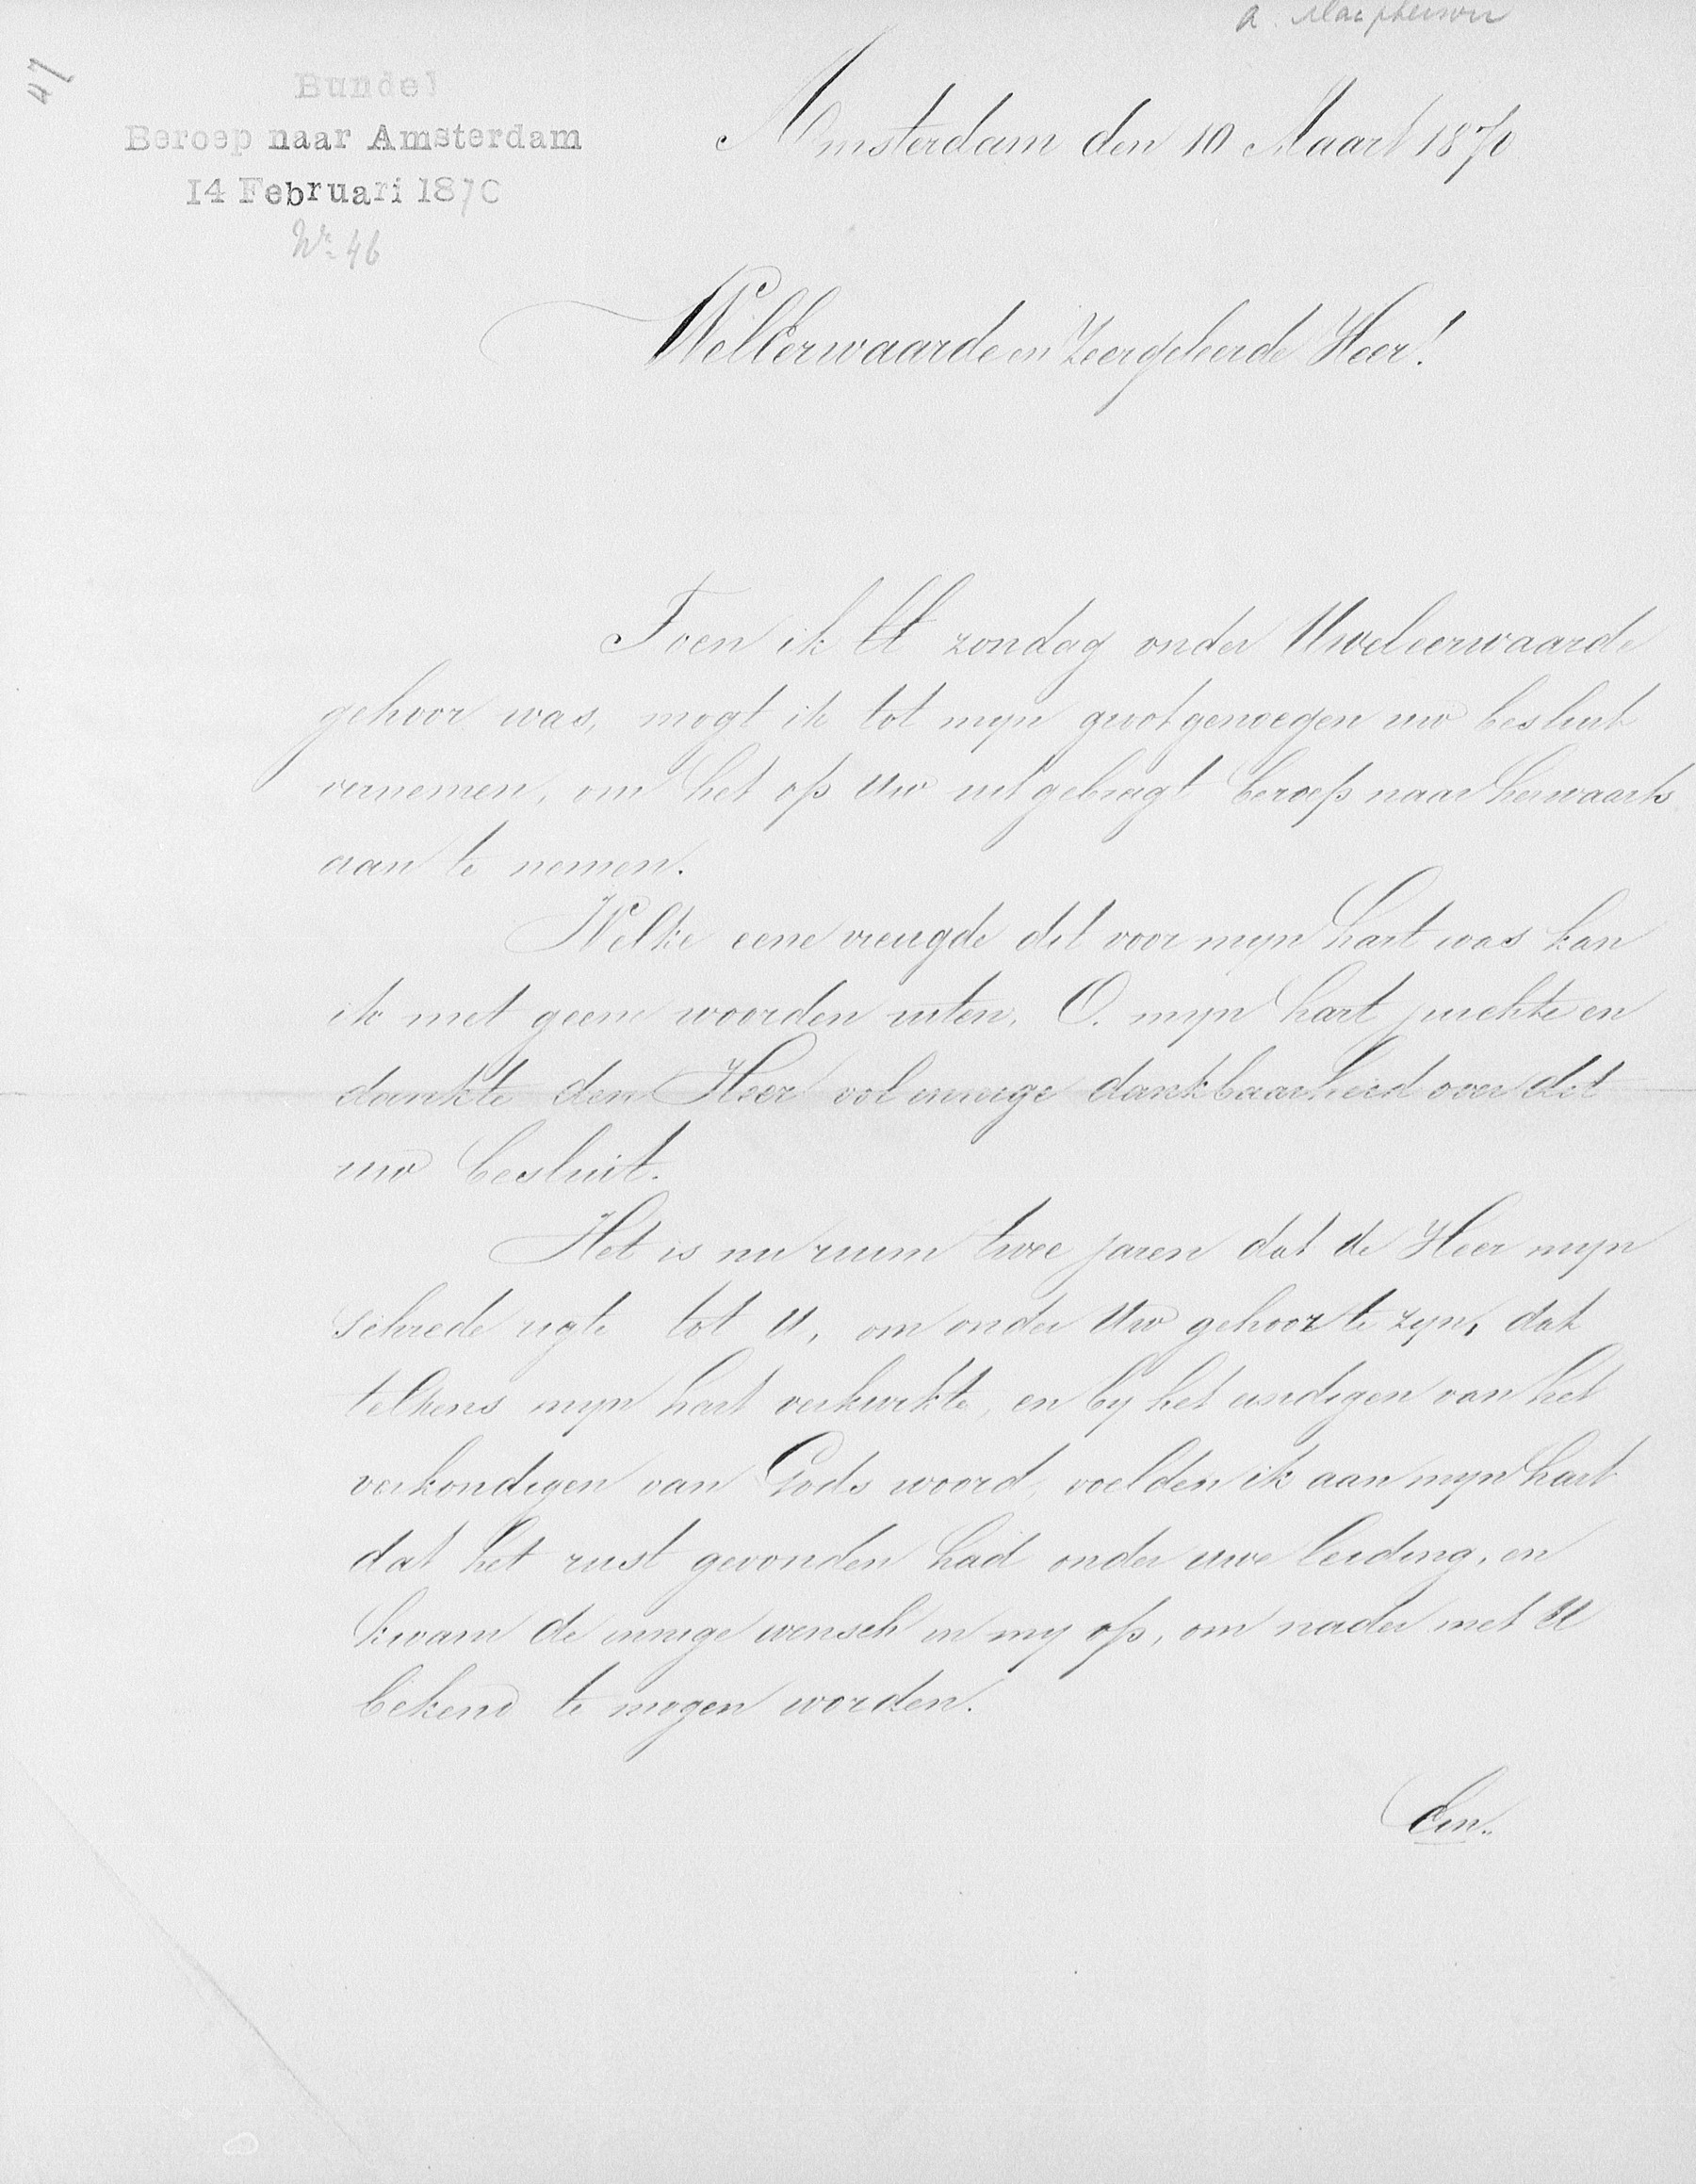 a. Macpherson
47
Bundel
Beroep naar Amsterdam
14 Februari 1870
Nr. 46
Amsterdam den 10 Maart 1870
WelEerwaarde en Zeergeleerde Heer!
Toen ik ll zondag onder Uweleerwaarde
gehoor was, mogt ik tot mijn grootgenoegen uw besluit
vernemen, om het op Uw uitgebragt beroep naar herwaarts
aan te nemen.
Welke eene vreugde dit voor mijn hart was kan
ik met geene woorden uiten. O. mijn hart juichte en
dankte den Heer vol innige dankbaarheid over dit
uw besluit.
Het is nu ruim twee jaren dat de Heer mijn
schrede rigte tot U, om onder Uw gehoor te zijn, dat
telkens mijn hart verkwikte, en bij het eindigen van het
verkondigen van Gods woord, voelden ik aan mijn hart
dat het rust gevonden had onder uwe leiding, en
kwam de innige wensch in mij op, om nader met U
bekend te mogen worden.
Een..